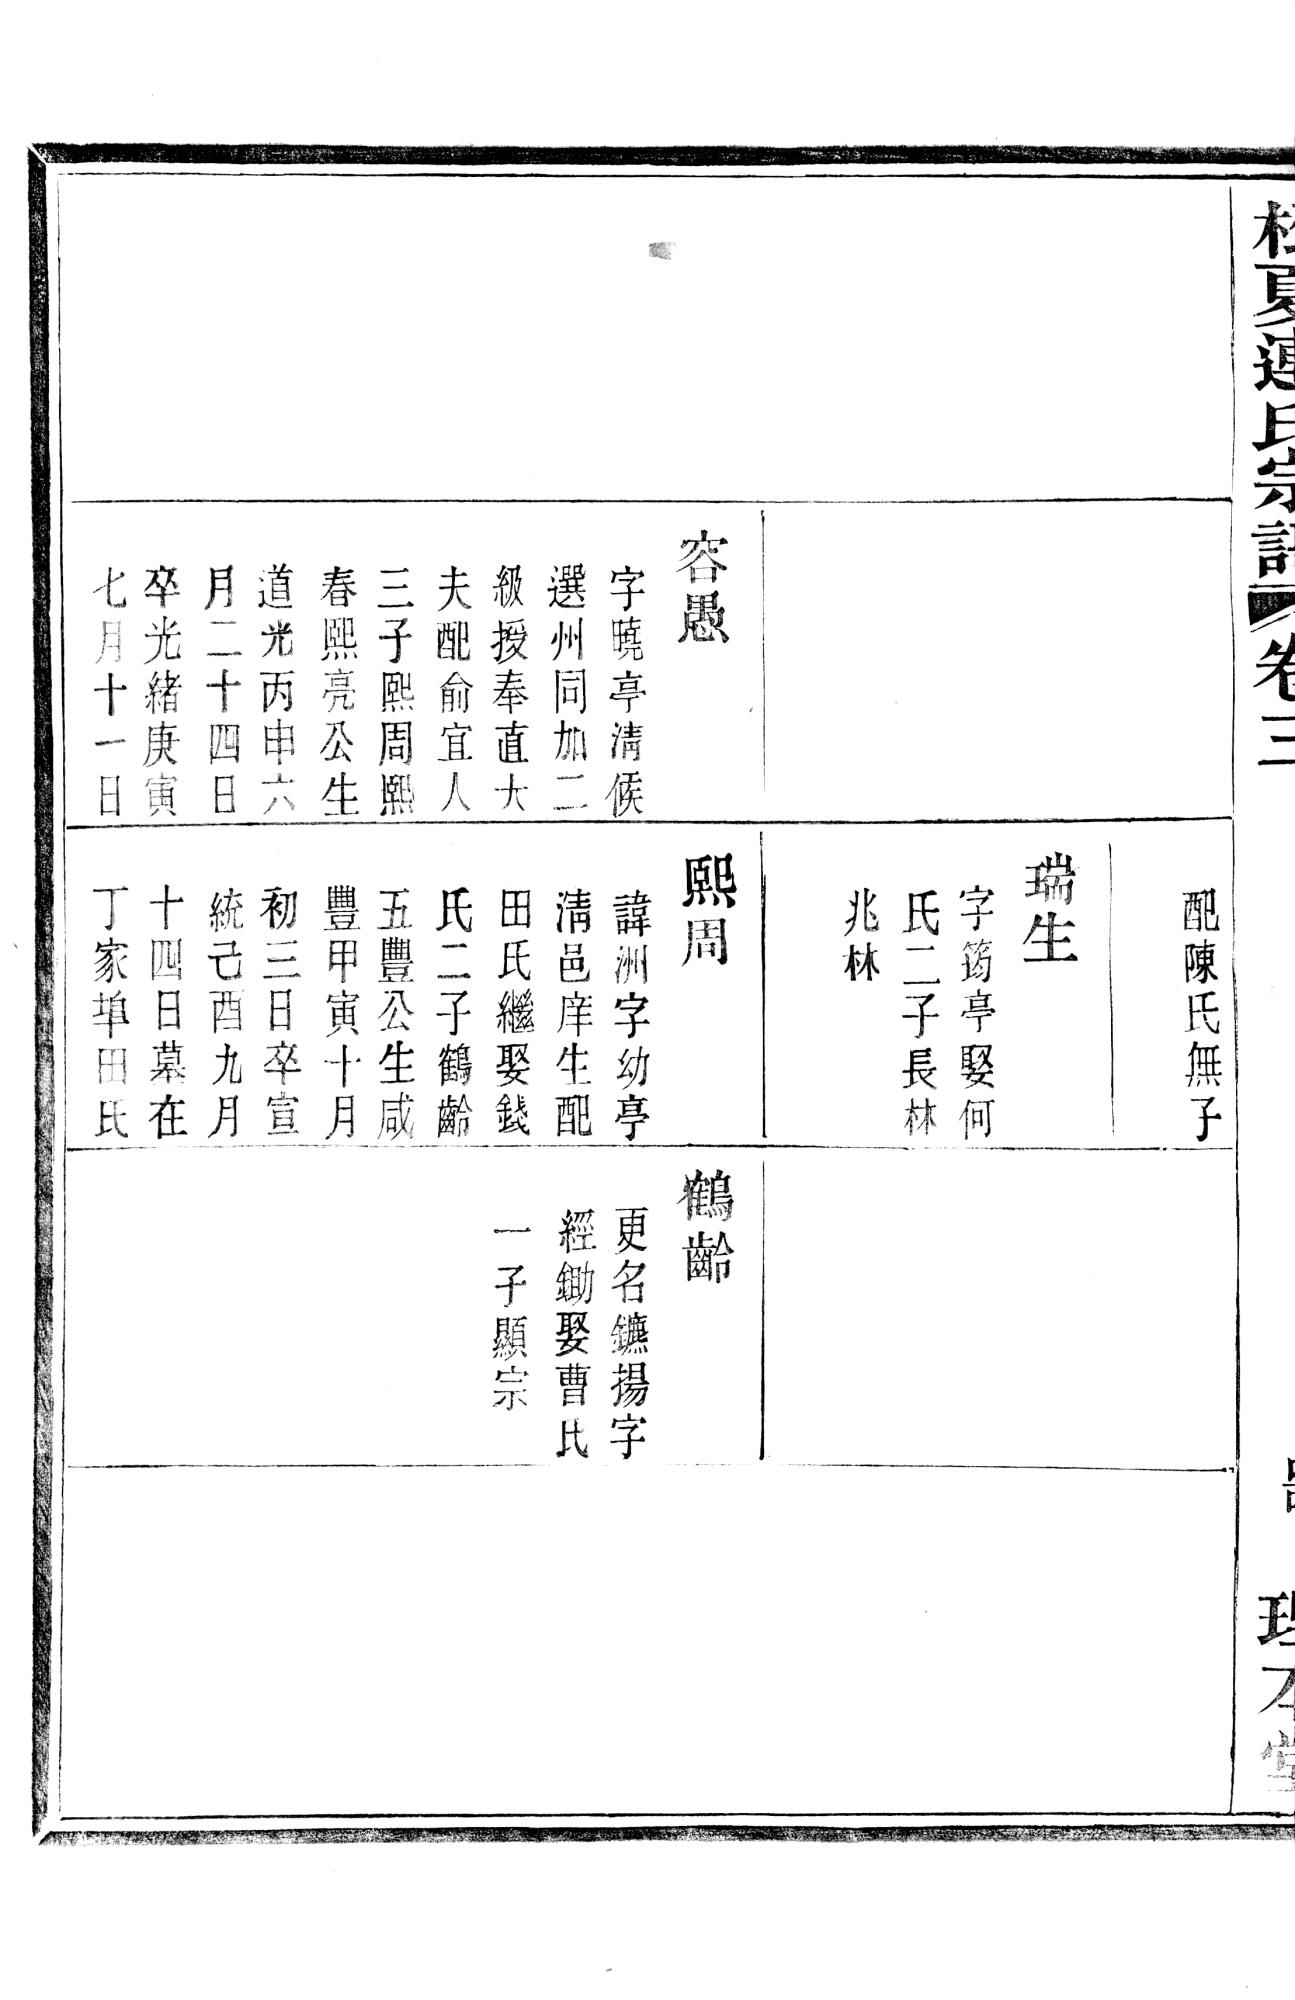 松夏連氏宗譜
卷三
理本堂
容愚
字曉亭清候
選州同加二
級授奉直大
夫配俞宜人
三子熙周熙
春熙亮公生
道光丙申六
月二十四日
卒光緒庚寅
七月十一日
配陳氏無子
瑞生
字筠亭娶何
氏二子長林
兆林
熙周
諱洲字幼亭
清邑庠生配
田氏繼娶錢
氏二子鶴齡
五豐公生咸
豐甲寅十月
初三日卒宣
統己酉九月
十四日墓在
丁家埠田氏
鶴齡
更名鑣揚字
經鋤娶曹氏
一子顯宗